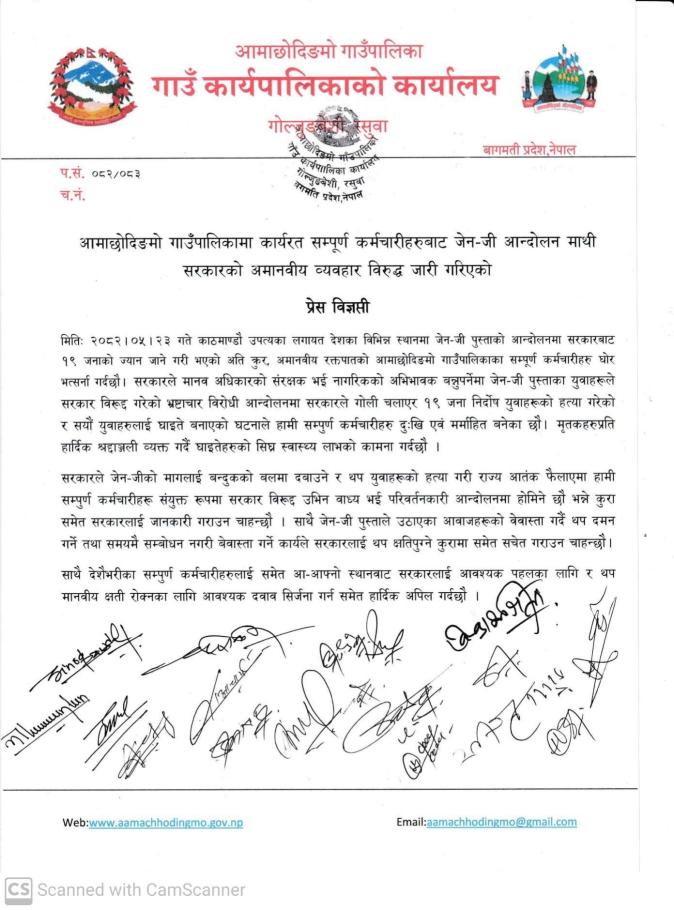 आमाछोदिङमो गाउँपालिका
गाउँ कार्यपालिकाको कार्यालय
गोल्जुङबेशी, रसुवा
आमाछोदिङमो गाउँपालिका
गाउँ कार्यपालिका कार्यालय
गोल्जुङबेशी, रसुवा
बागमति प्रदेश,नेपाल
बागमती प्रदेश,नेपाल
प.सं. ०८२/०८३
च.नं.
आमाछोदिङमो गाउँपालिकामा कार्यरत सम्पूर्ण कर्मचारीहरुबाट जेन-जी आन्दोलन माथी
सरकारको अमानवीय व्यवहार विरुद्ध जारी गरिएको
प्रेस विज्ञप्ती
मितिः २०८२।०५।२३ गते काठमाण्डौ उपत्यका लगायत देशका विभिन्न स्थानमा जेन-जी पुस्ताको आन्दोलनमा सरकारबाट
१९ जनाको ज्यान जाने गरी भएको अति क्रुर, अमानवीय रक्तपातको आमाछोदिङमो गाउँपालिकाका सम्पूर्ण कर्मचारीहरु घोर
भत्सर्ना गर्दछौ। सरकारले मानव अधिकारको संरक्षक भई नागरिकको अभिभावक बन्नुपर्नेमा जेन-जी पुस्ताका युवाहरूले
सरकार विरूद्द गरेको भ्रष्टाचार विरोधी आन्दोलनमा सरकारले गोली चलाएर १९ जना निर्दोष युवाहरूको हत्या गरेको
र सयौं युवाहरुलाई घाइते बनाएको घटनाले हामी सम्पूर्ण कर्मचारीहरु दुःखि एवं मर्माहित बनेका छौ। मृतकहरुप्रति
हार्दिक श्रद्दाञ्जली व्यक्त गर्दै घाइतेहरुको सिघ्र स्वास्थ्य लाभको कामना गर्दछौ ।
सरकारले जेन-जीको मागलाई बन्दुकको बलमा दबाउने र थप युवाहरूको हत्या गरी राज्य आतंक फैलाएमा हामी
सम्पूर्ण कर्मचारीहरू संयुक्त रूपमा सरकार विरूद्द उभिन वाध्य भई परिवर्तनकारी आन्दोलनमा होमिने छौ भन्ने कुरा
समेत सरकारलाई जानकारी गराउन चाहन्छौ । साथै जेन-जी पुस्ताले उठाएका आवाजहरूको वेवास्ता गर्दै थप दमन
गर्ने तथा समयमै सम्बोधन नगरी बेवास्ता गर्ने कार्यले सरकारलाई थप क्षतिपुग्ने कुरामा समेत सचेत गराउन चाहन्छौ।
साथै देशैभरीका सम्पुर्ण कर्मचारीहरुलाई समेत आ-आफ्नो स्थानवाट सरकारलाई आवश्यक पहलका लागि र थप
मानवीय क्षती रोक्नका लागि आवश्यक दवाव सिर्जना गर्न समेत हार्दिक अपिल गर्दछौ ।
Web:www.aamachhodingmo.gov.np
Email:aamachhodingmo@gmail.com
CS Scanned with CamScanner